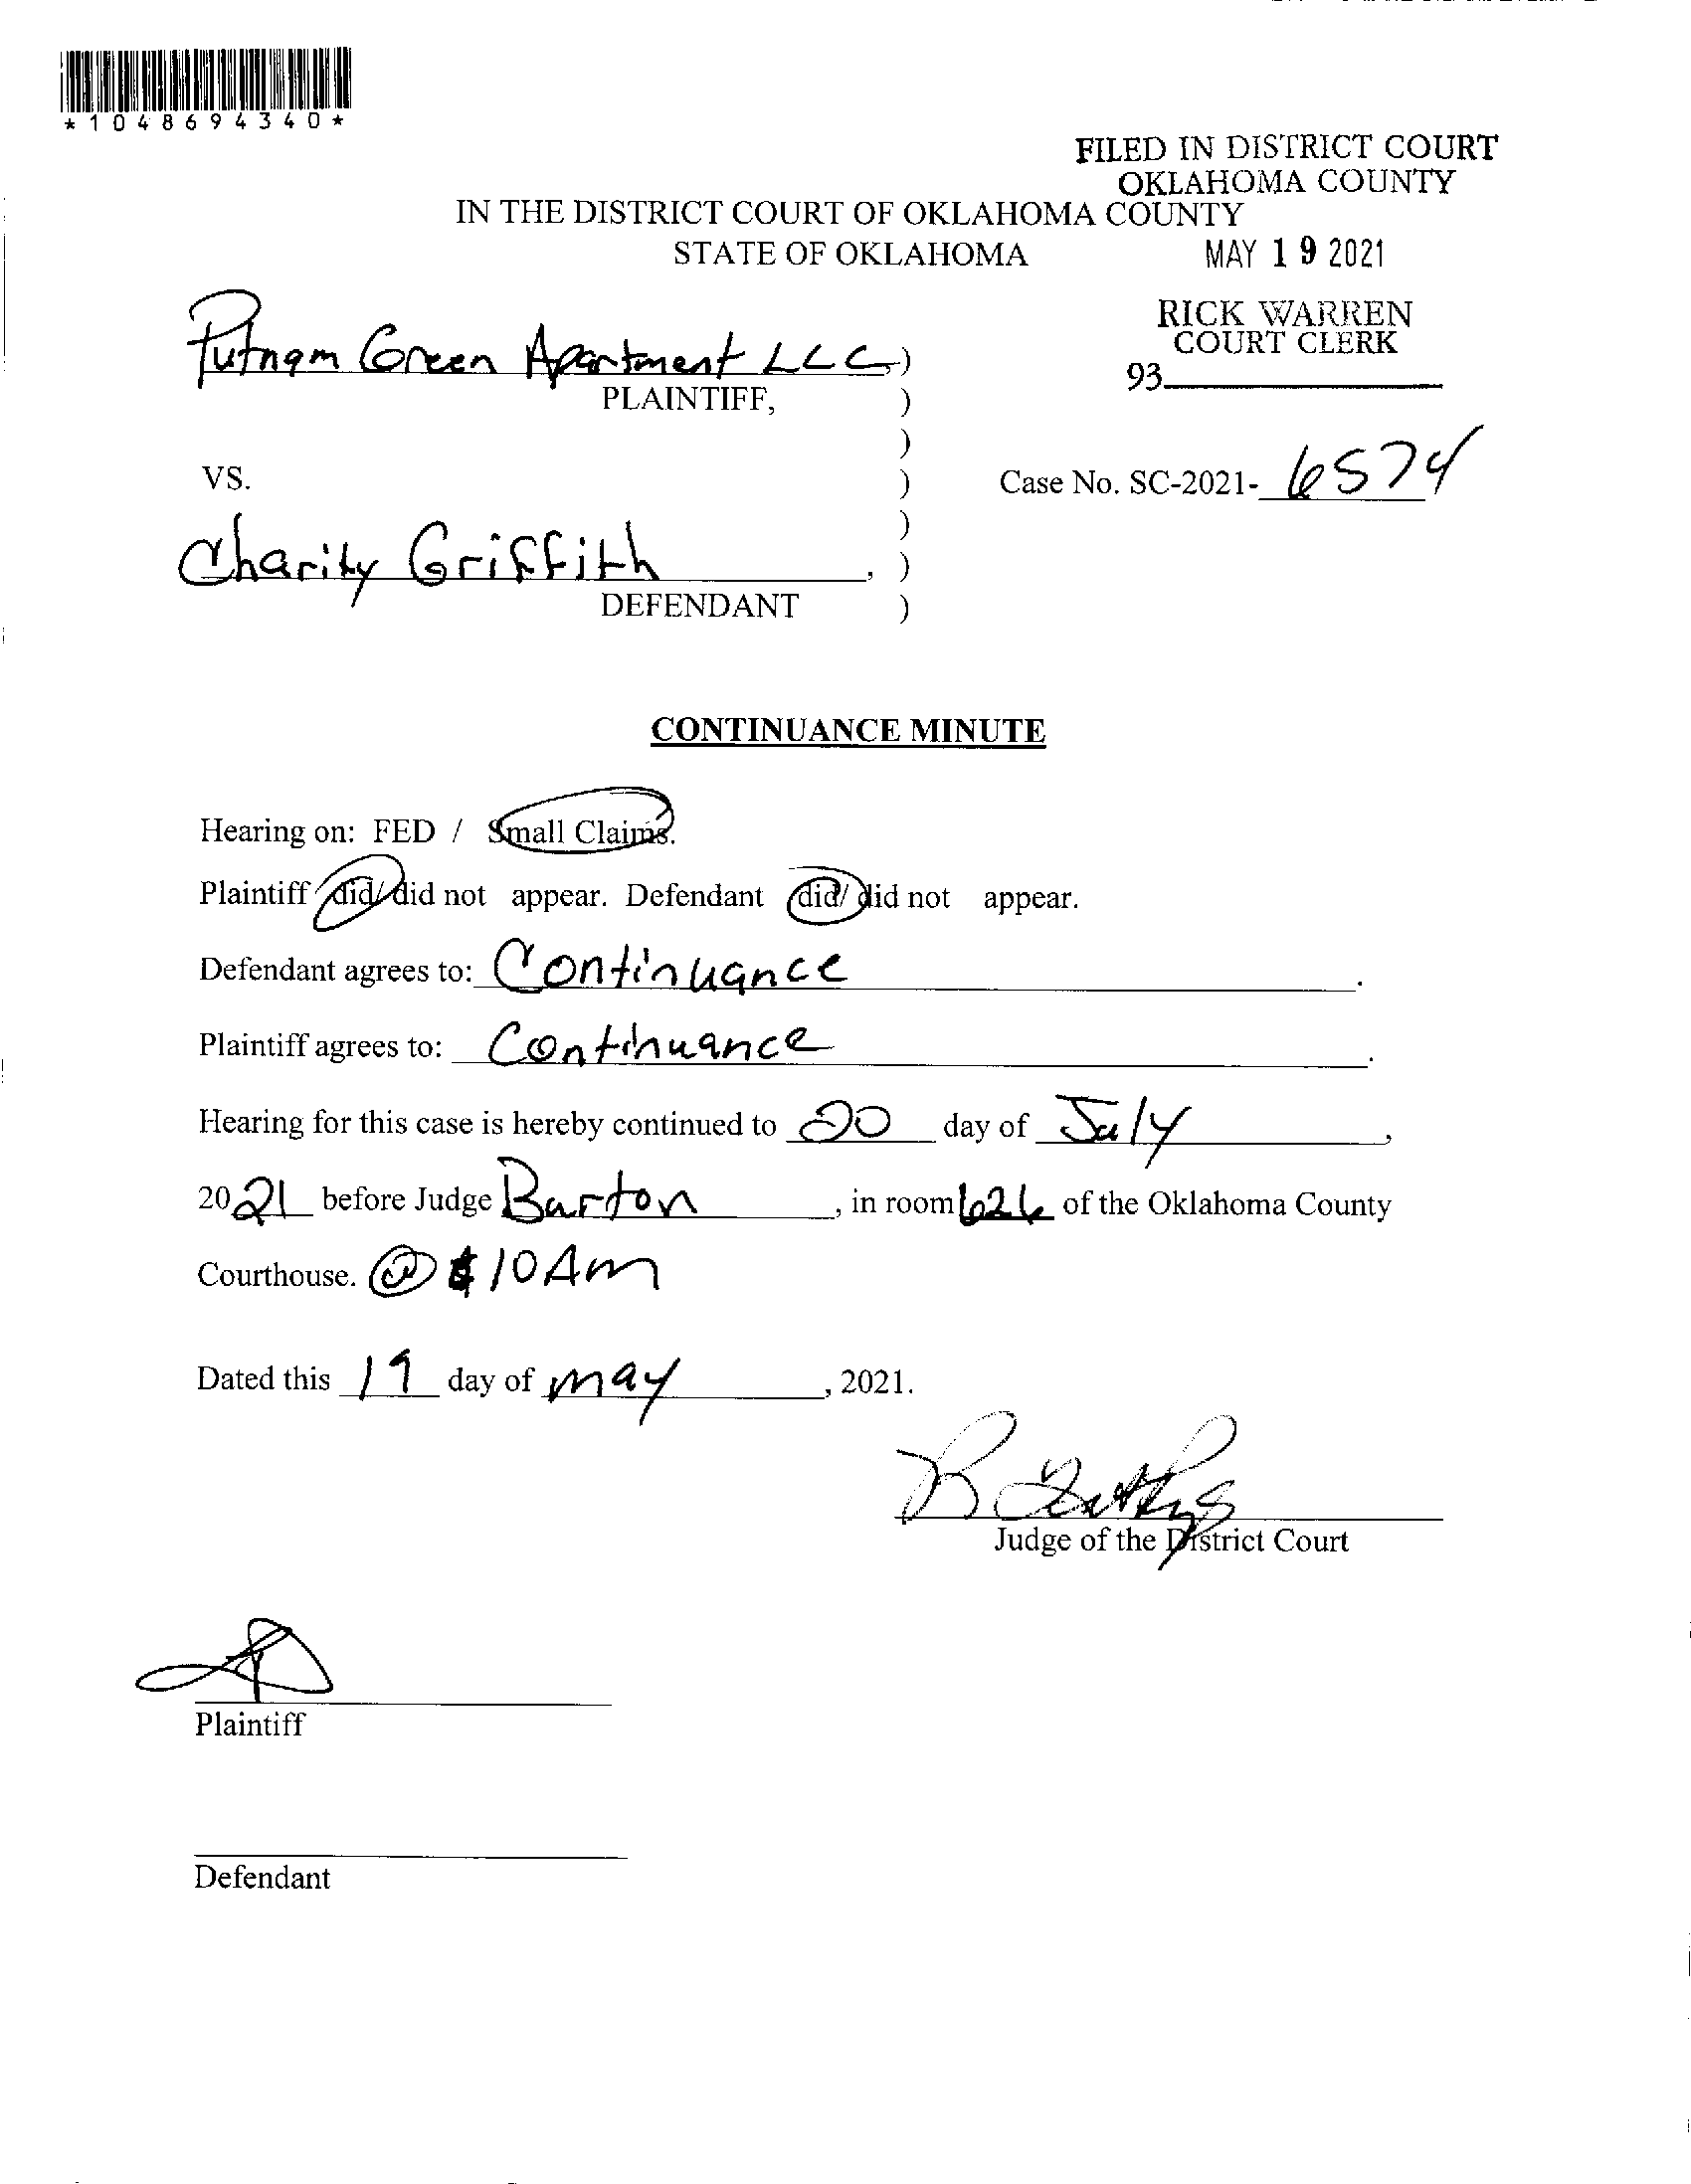 *1048694340*
FILED IN DISTRICT COURT
OKLAHOMA COUNTY
IN THE DISTRICT COURT OF OKLAHOMA COUNTY
STATE OF OKLAHOMA
MAY 19 2021
RICK WARREN
COURT CLERK
93
Putnam Green Apartment LLC )
PLAINTIFF, )
)
VS. )
Case No. SC-2021- 6574
)
Charity Griffith , )
DEFENDANT )
CONTINUANCE MINUTE
Hearing on: FED / Small Claims.
Plaintiff did/ did not appear. Defendant did/ did not appear.
Defendant agrees to: Continuance .
Plaintiff agrees to: Continuance .
Hearing for this case is hereby continued to 20 day of July ,
2021 before Judge Barton , in room 626 of the Oklahoma County
Courthouse. @ 10 Am
Dated this 19 day of may , 2021.
Judge of the District Court
Plaintiff
Defendant